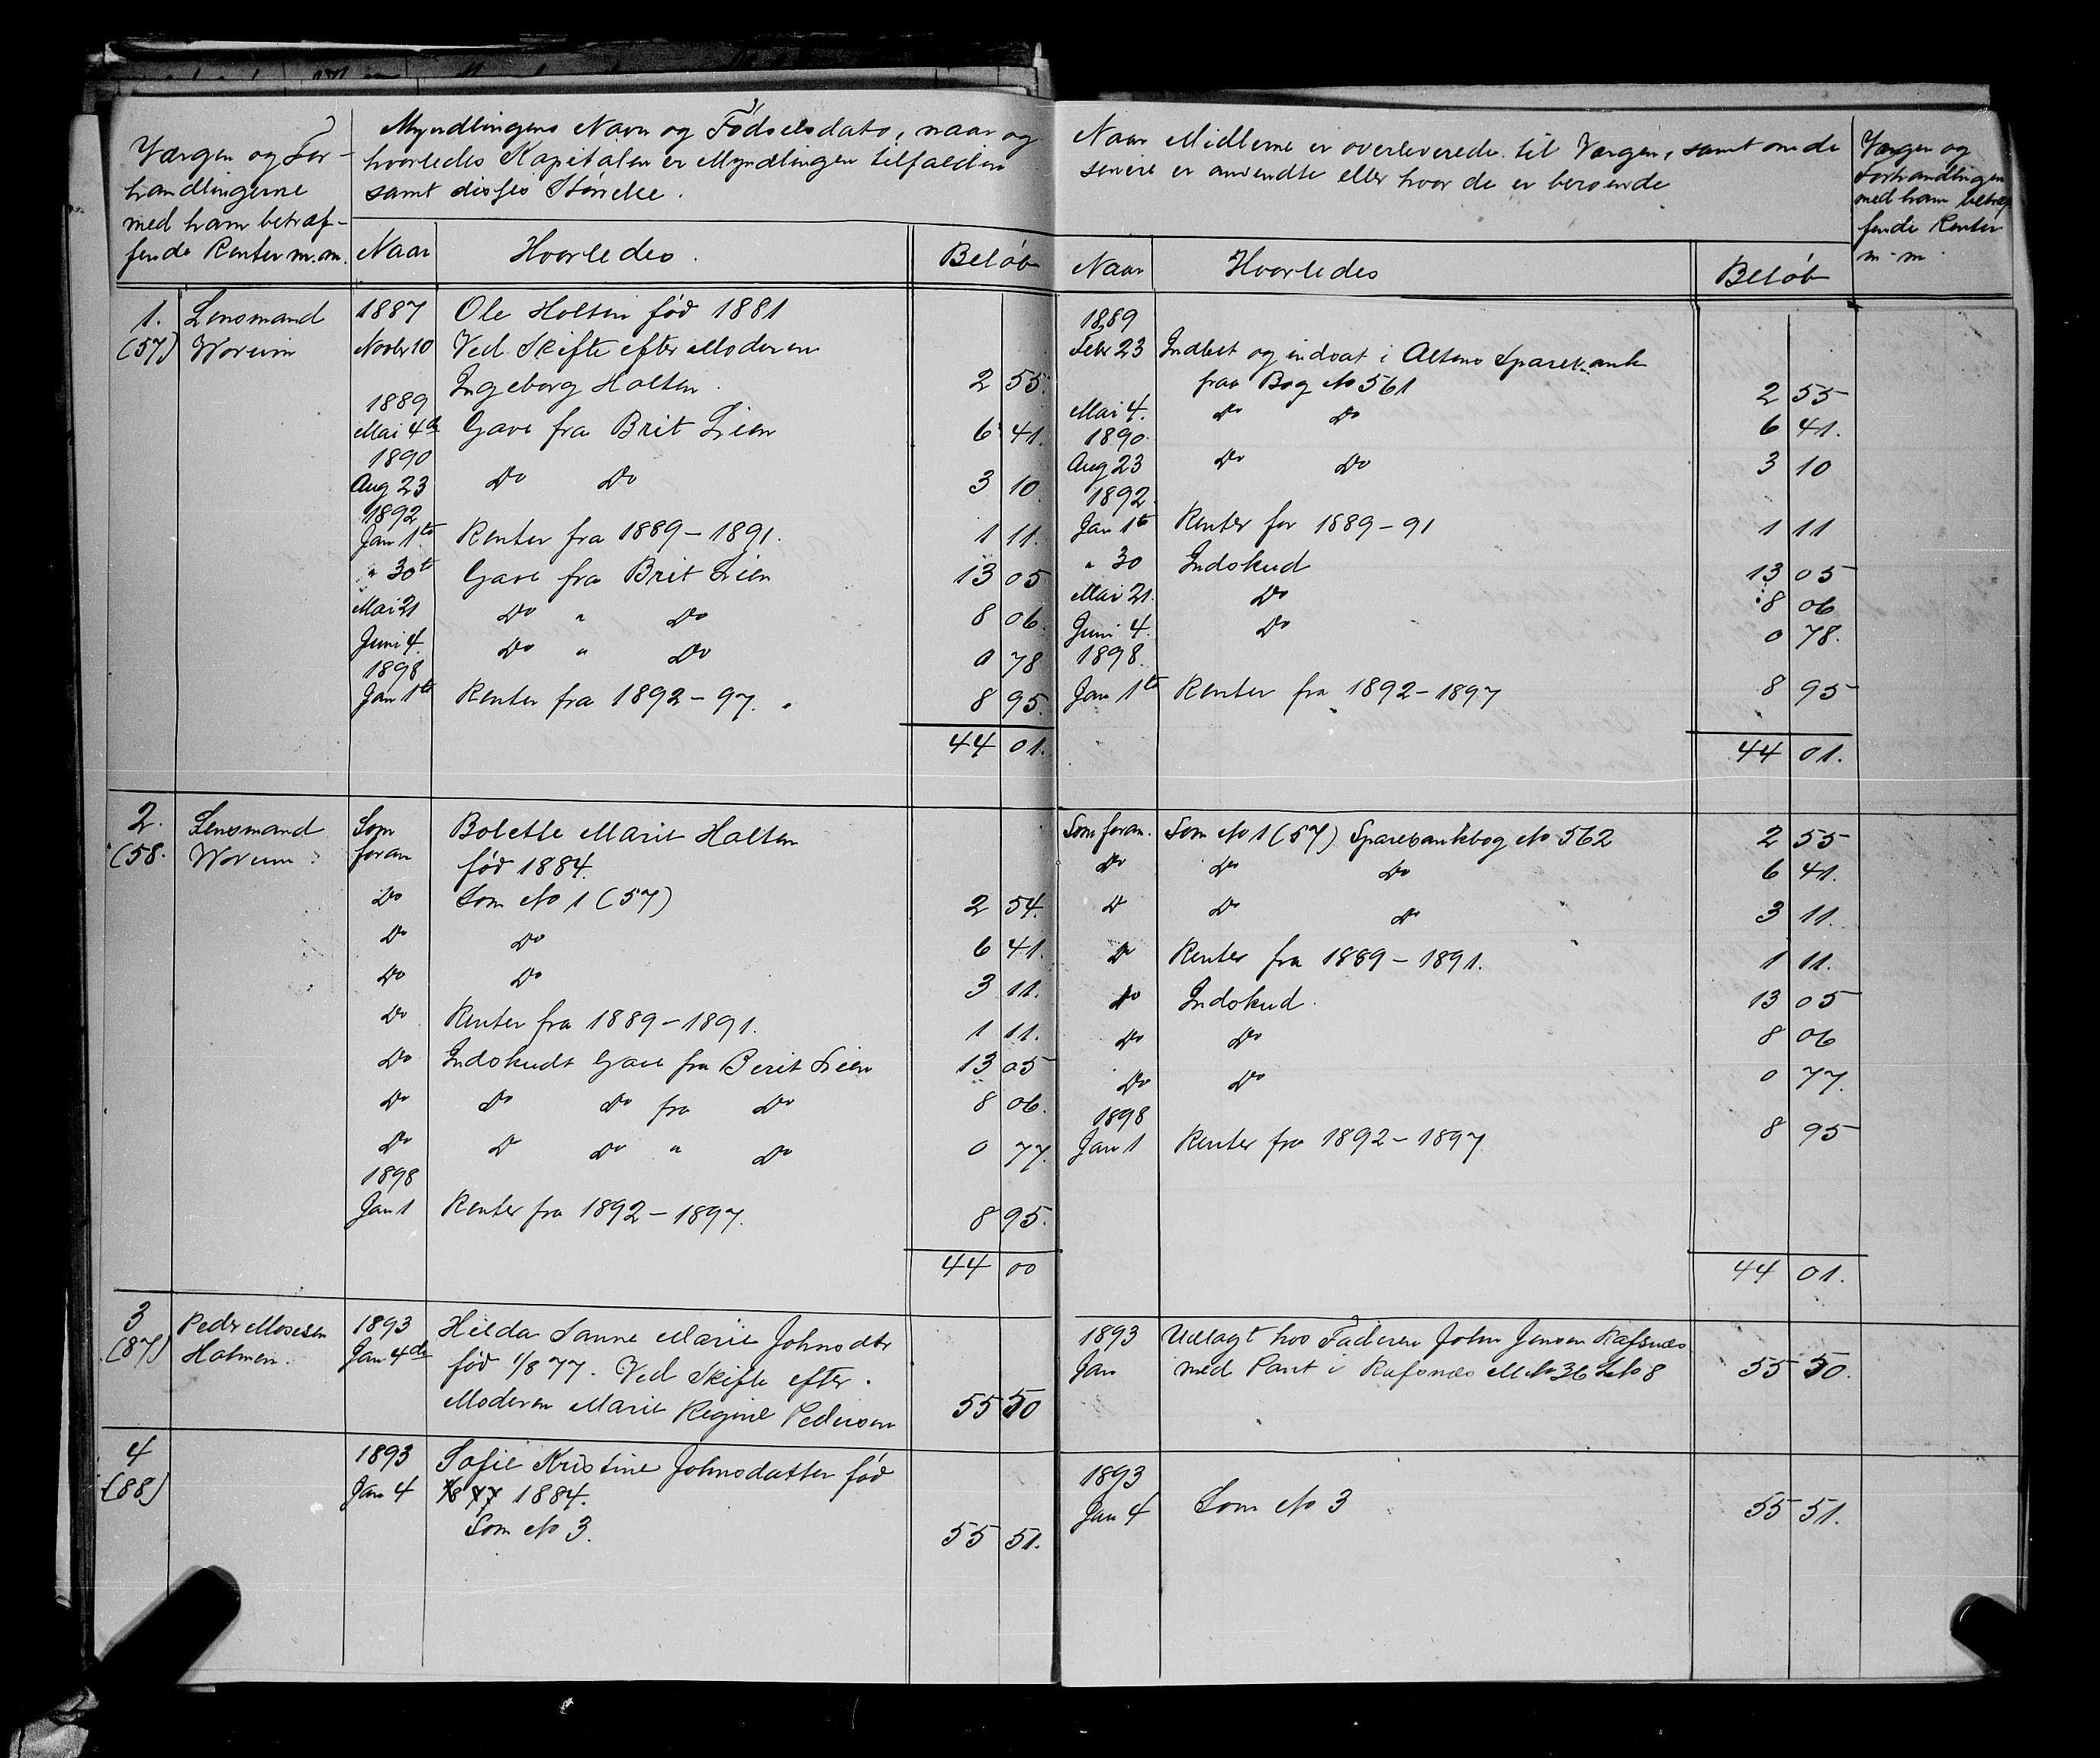 Værgen og For-
handlingerne
med ham betræf-
fende Renter m.m.
Myndlingens Navn og Fødselsdato, naar og
hvorledes Kapitalen er Myndlingen tilfalden
samt disses Størrelse.
Naar Hvorledes. Beløb
1. Lensmand 1887 Ole Holten fød 1881
(57) Worum Novbr 10 Ved Skifte efter Moderen
Ingeborg Holten. 2 55.
1889
Mai 4de Gave fra Brit Lien 6 41.
1890
Aug 23 Do Do 3 10
1892
Jan 1te Renter fra 1889-1891. 1 11.
" 30t Gave fra Brit Lien 13 05
Mai 21 Do " Do 8 06.
Juni 4. Do " Do 0 78
1898
Jan 1te Renter fra 1892-97. 8 95.
44 01.
2. Lensmand Som Bolette Marie Holten
(58. Worum foran fød 1884.
Do Som No 1 (57) 2 54.
Do Do 6 41.
Do Do 3 11.
Do Renter fra 1889-1891. 1 11.
Do Indskudt Gave fra Berit Lien 13 05
Do Do Do fra Do 8 06.
Do Do Do " Do 0 77.
1898
Jan 1 Renter fra 1892-1897. 8 95.
44 00
3 Peder Mosesen 1893 Hilda Sanne Marie Johnsdtr
(87) Holmen. Jan 4de fød 1/8 77. Ved Skifte efter
Moderen Marie Regine Pedersen 55 50
4 1893 Sofie Kristine Johnsdatter fød
(88) Jan 4 1/8 77 1884.
Som No 3. 55 51.
Naar Midlerne er overleverede til Værgen, samt om de
senere er anvendte eller hvor de er beroende
Værgen og
Forhandlingen
med ham betræf
fende Renter
m-m.
Naar Hvorledes Beløb
1889
Febr 23 Indløst og indsat i Altens Sparebank
fraa Bog No 561 2 55
Mai 4. Do Do 6 41.
1890.
Aug 23 Do Do 3 10
1892.
Jan 1te Renter for 1889-91 1 11
" 30 Indskud 13 05
Mai 21. Do 8 06
Juni 4. Do 0 78.
1898.
Jan 1te Renter fra 1892-1897 8 95
44 01.
Som foran. Som No 1 (57) Sparebankbog No 562 2 55
Do Do Do 6 41.
Do Do Do 3 11.
Do Renter fra 1889-1891. 1 11.
Do Indskud. 13 05
Do Do 8 06
Do Do 0 77.
1898
Jan 1 Renter fra 1892-1897 8 95
44 01.
1893 Udlagt hos Faderen John Jensen Rafsnæs
Jan med Pant i Rafsnæs M No 36 L No 8 55 50.
1893
Jan 4 Som No 3 55 51.